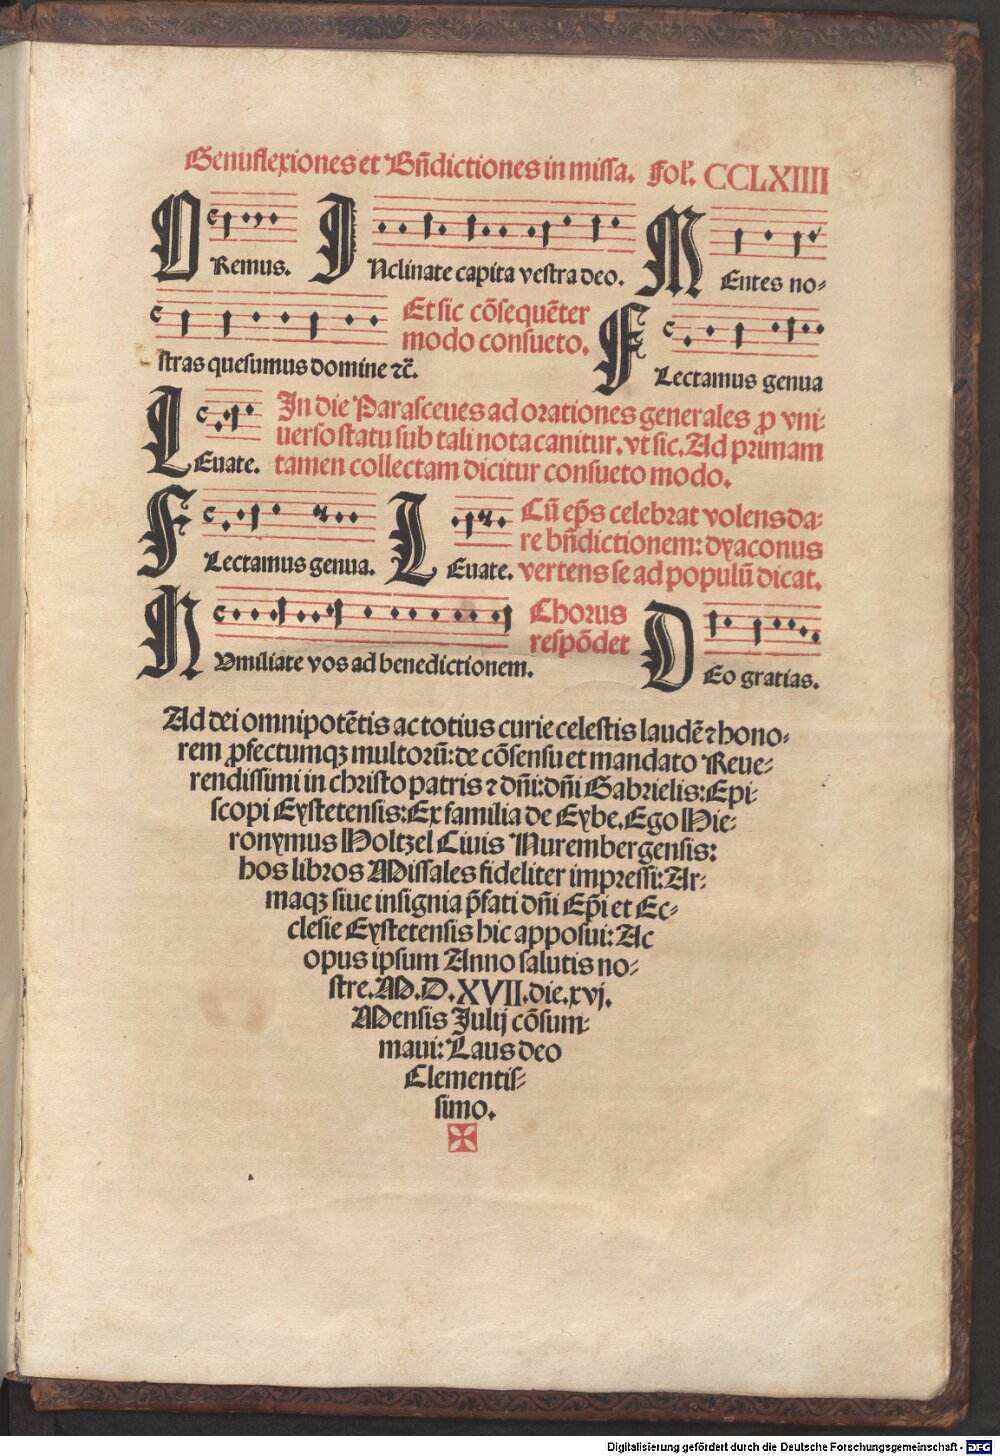 Genuflexiones et Bñdictiones in missa. Fol. CCLXIIII
ORemus. INclinate capita vestra deo. MEntes no-
stras quesumus domine ⁊c̃. Et sic cõsequẽter
modo consueto. FLectamus genua
LEuate. In die Parasceues ad orationes generales ꝓ vni-
uerso statu sub tali nota canitur. vt sic. Ad primam
tamen collectam dicitur consueto modo.
FLectamus genua. LEuate. Cũ ep̃s celebrat volens da-
re bñdictionem: dyaconus
vertens se ad populũ dicat.
HVmiliate vos ad benedictionem. Chorus
respõdet DEo gratias.
Ad dei omnipotẽtis ac totius curie celestis laudẽ ⁊ hono-
rem ꝓfectumqꝫ multorũ: de cõsensu et mandato Reue-
rendissimi in christo patris ⁊ dñi: dñi Gabrielis: Epi-
scopi Eystetensis: Ex familia de Eybe. Ego Hie-
ronymus Holtzel Ciuis Nurembergensis:
hos libros Missales fideliter impressi: Ar-
maqꝫ siue insignia p̃fati dñi Ep̃i et Ec-
clesie Eystetensis hic apposui: Ac
opus ipsum Anno salutis no-
stre. M.D.XVII. die. xvj.
Mensis Julij cõsum-
maui: Laus deo
Clementis-
simo.
Digitalisierung gefördert durch die Deutsche Forschungsgemeinschaft - DFG